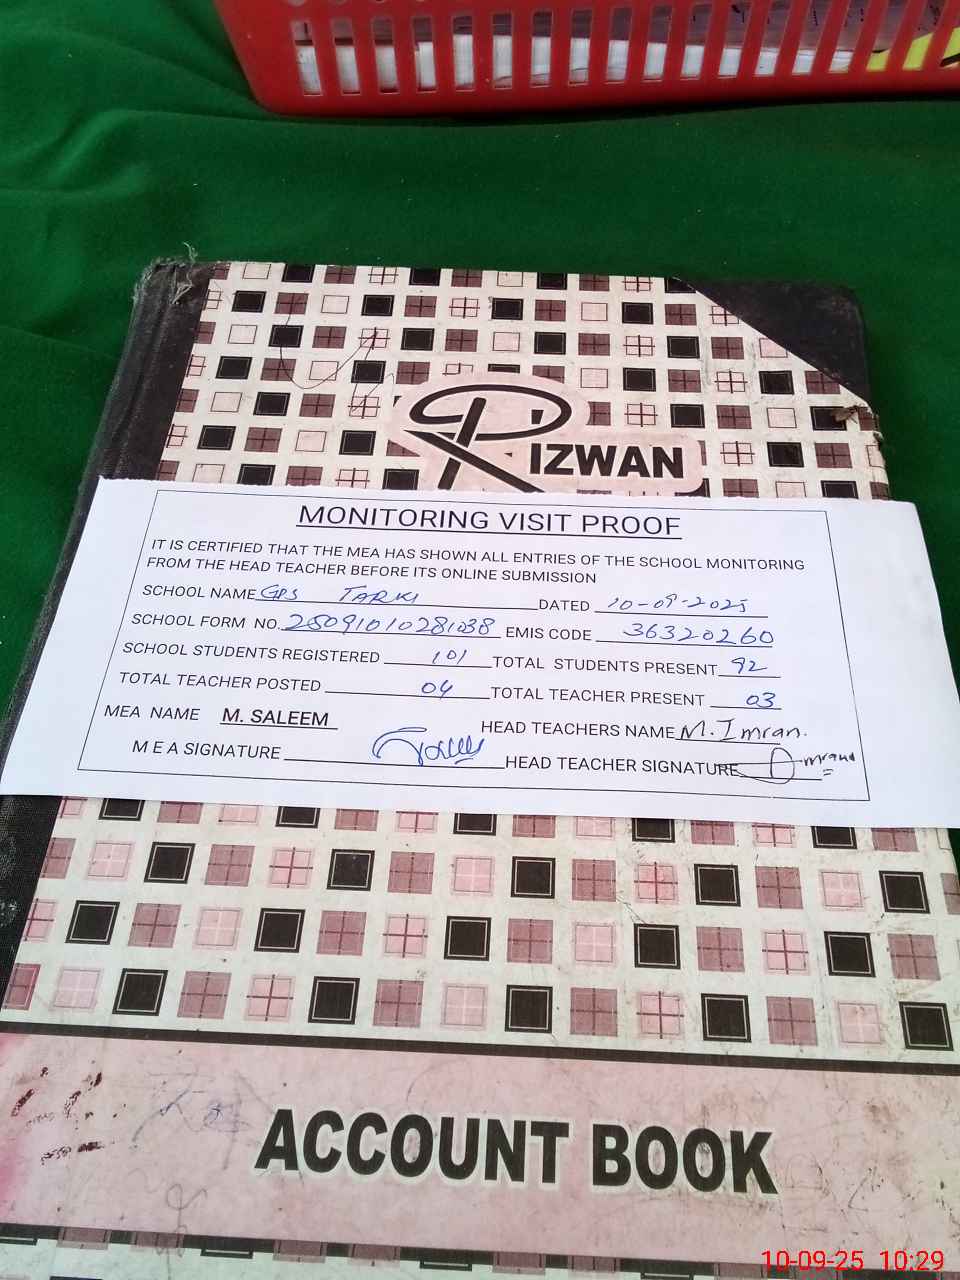 RIZWAN
MONITORING VISIT PROOF
IT IS CERTIFIED THAT THE MEA HAS SHOWN ALL ENTRIES OF THE SCHOOL MONITORING
FROM THE HEAD TEACHER BEFORE ITS ONLINE SUBMISSION
SCHOOL NAME GPS TARKI DATED 10-09-2025
SCHOOL FORM NO. 25091010281038 EMIS CODE 36320260
SCHOOL STUDENTS REGISTERED 101 TOTAL STUDENTS PRESENT 92
TOTAL TEACHER POSTED 04 TOTAL TEACHER PRESENT 03
MEA NAME M. SALEEM HEAD TEACHERS NAME M. Imran.
M E A SIGNATURE HEAD TEACHER SIGNATURE
ACCOUNT BOOK
10-09-25 10:29